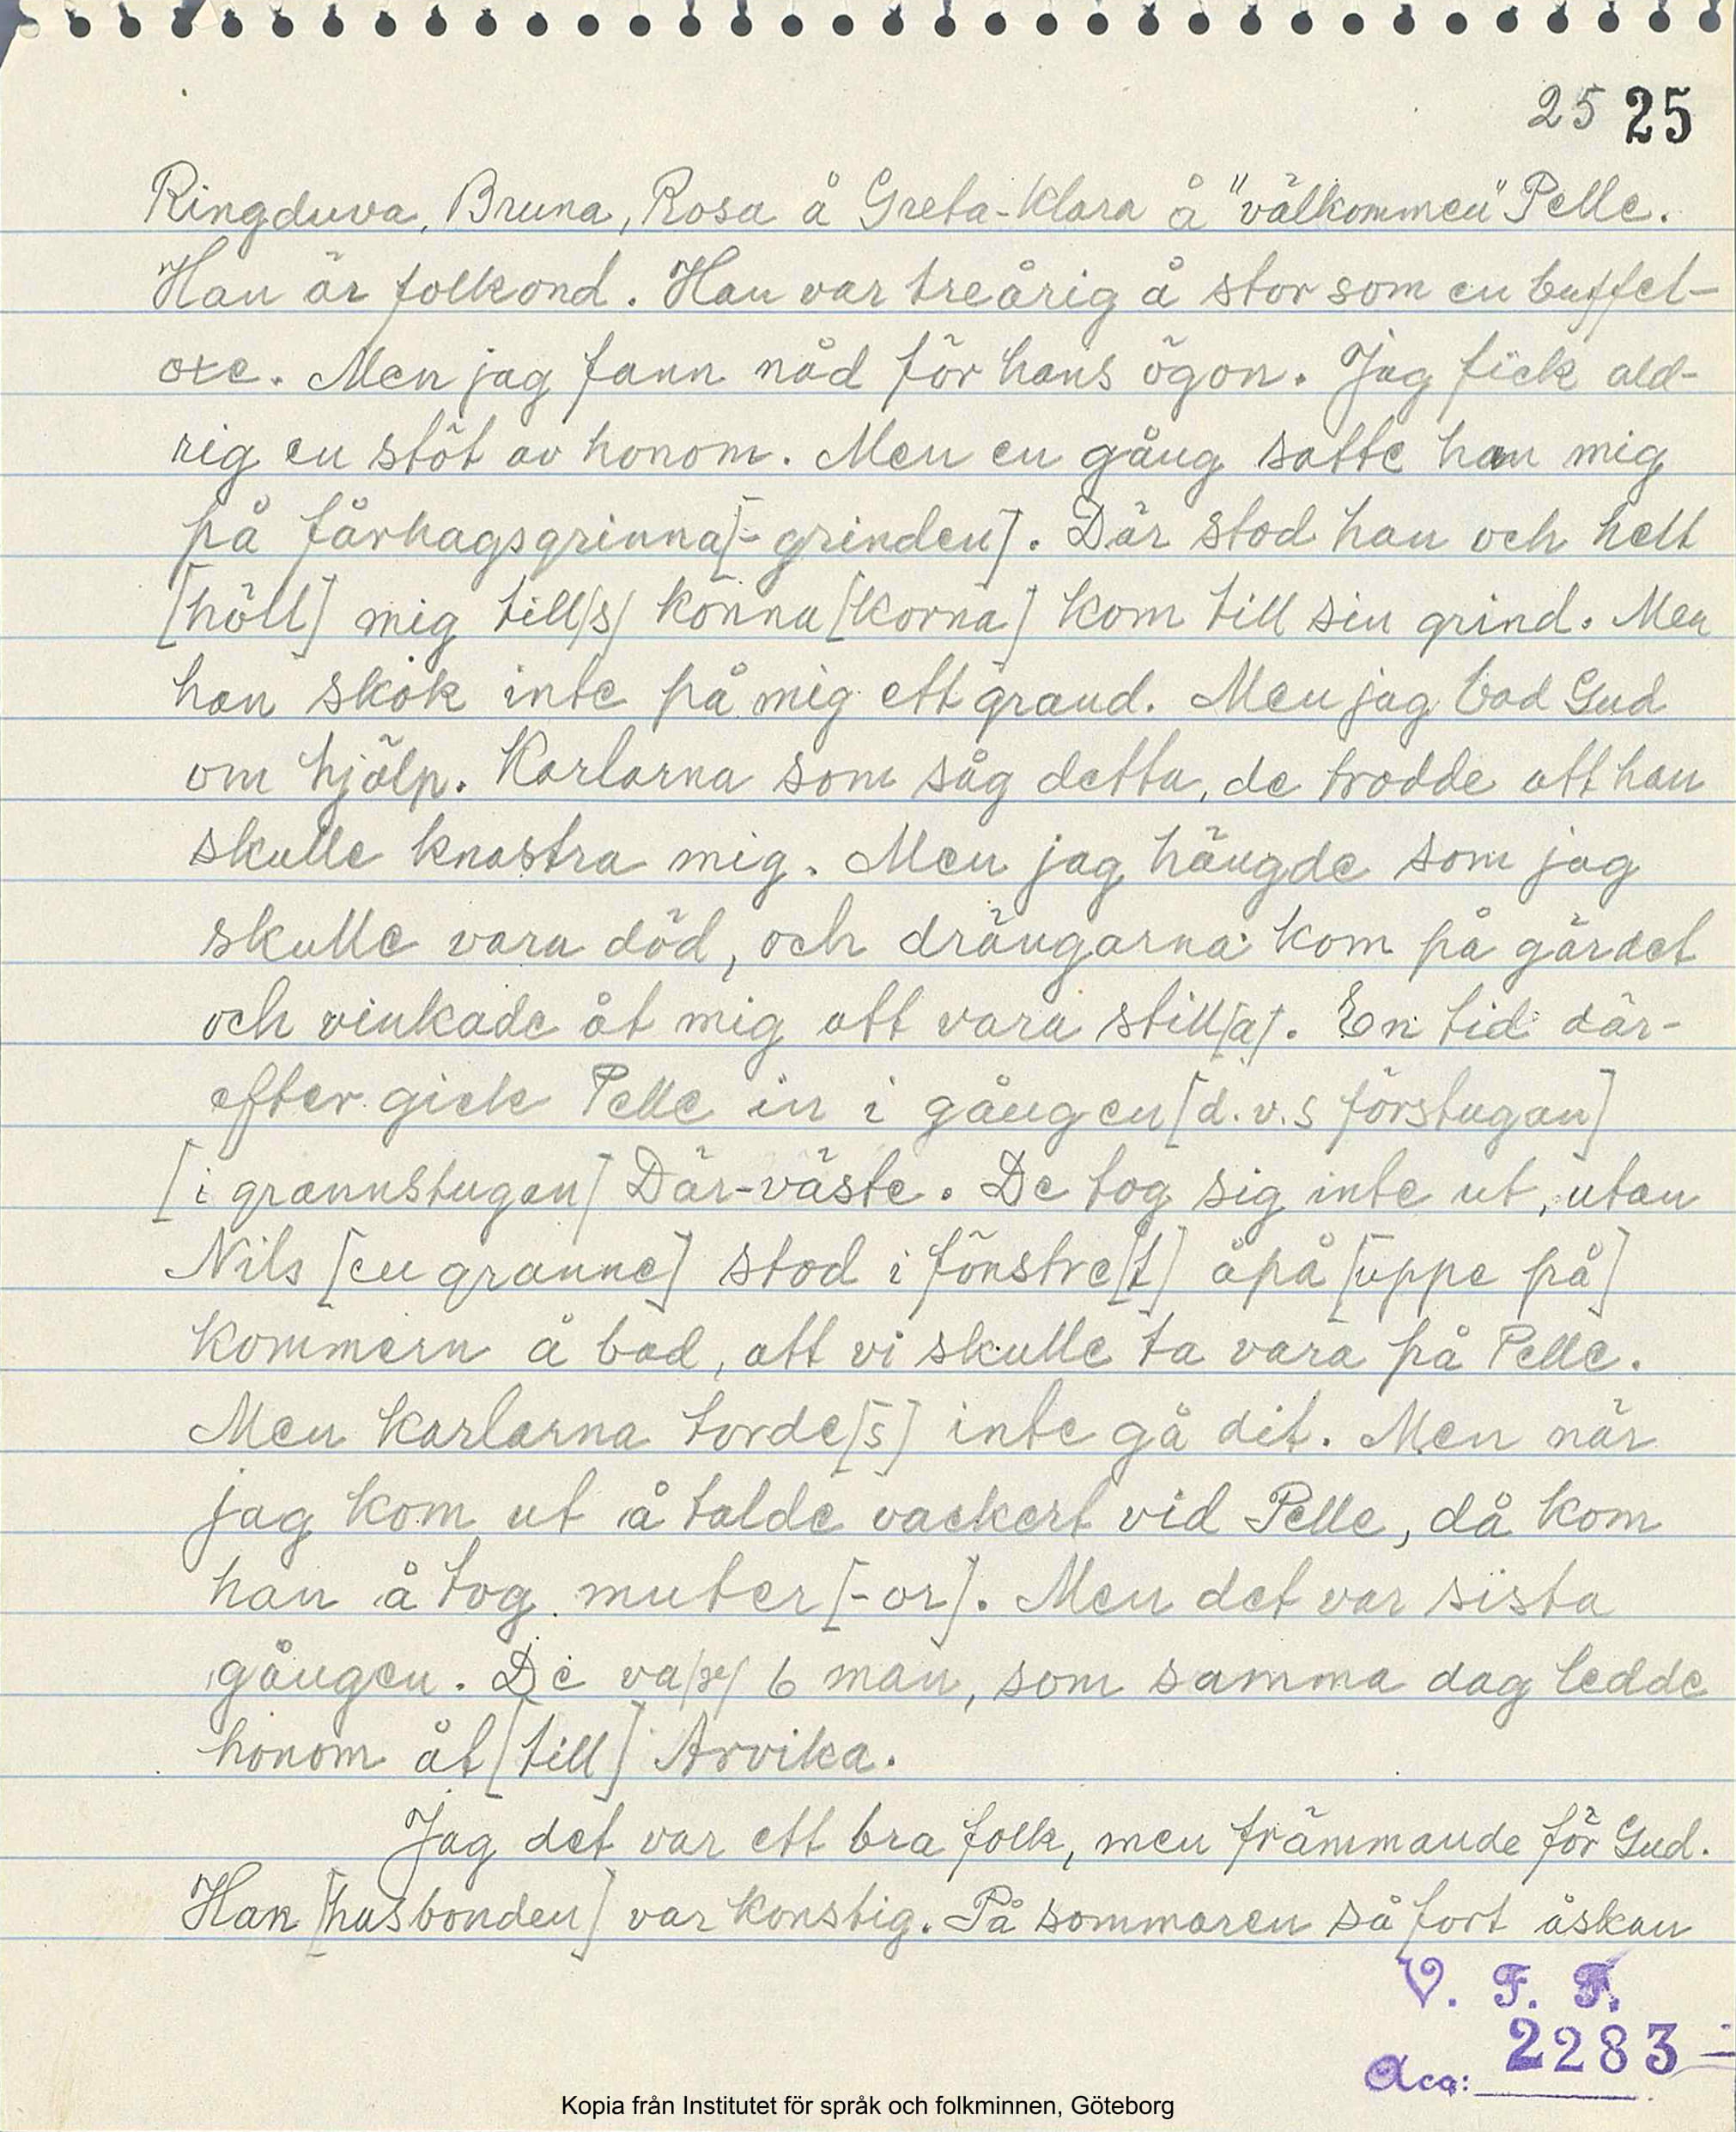 25 25
Ringduva, Bruna, Rosa å Greta-Klara å "välkommen" Pelle.
Han är folkond. Han var treårig å stor som en buffel-
oxe. Men jag fann nåd för hans ögon. Jag fick ald-
rig en stöt av honom. Men en gång satte han mig
på fårhagsgrinna[-grinden]. Där stod han och helt
[höll] mig till/s/ könna [korna] kom till sin grind. Men
han skok inte på mig ett grand. Men jag bad Gud
om hjälp. Karlarna som såg detta, de trodde att han
skulle knastra mig. Men jag hängde som jag
skulle vara död, och drängarna kom på gärdet
och vinkade åt mig att vara still[a]. En tid där-
efter gick Pelle in i gången [d.v.s förstugan]
[i grannstugan] Där-väste. De tog sig inte ut, utan
Nils [en granne] stod i fönstre[t] åpå [uppe på]
kommern å bad, att vi skulle ta vara på Pelle.
Men karlarna torde[s] inte gå dit. Men när
jag kom ut å talde vackert vid Pelle, då kom
han å tog muter [-or]. Men det var sista
gången. De va/r/ 6 man, som samma dag ledde
honom åt [till] Arvika.
Jag det var ett bra folk, men främmande för Gud.
Han [husbonden] var konstig. På sommaren så fort åskan
V. F. F.
2283
Acc:
Kopia från Institutet för språk och folkminnen, Göteborg